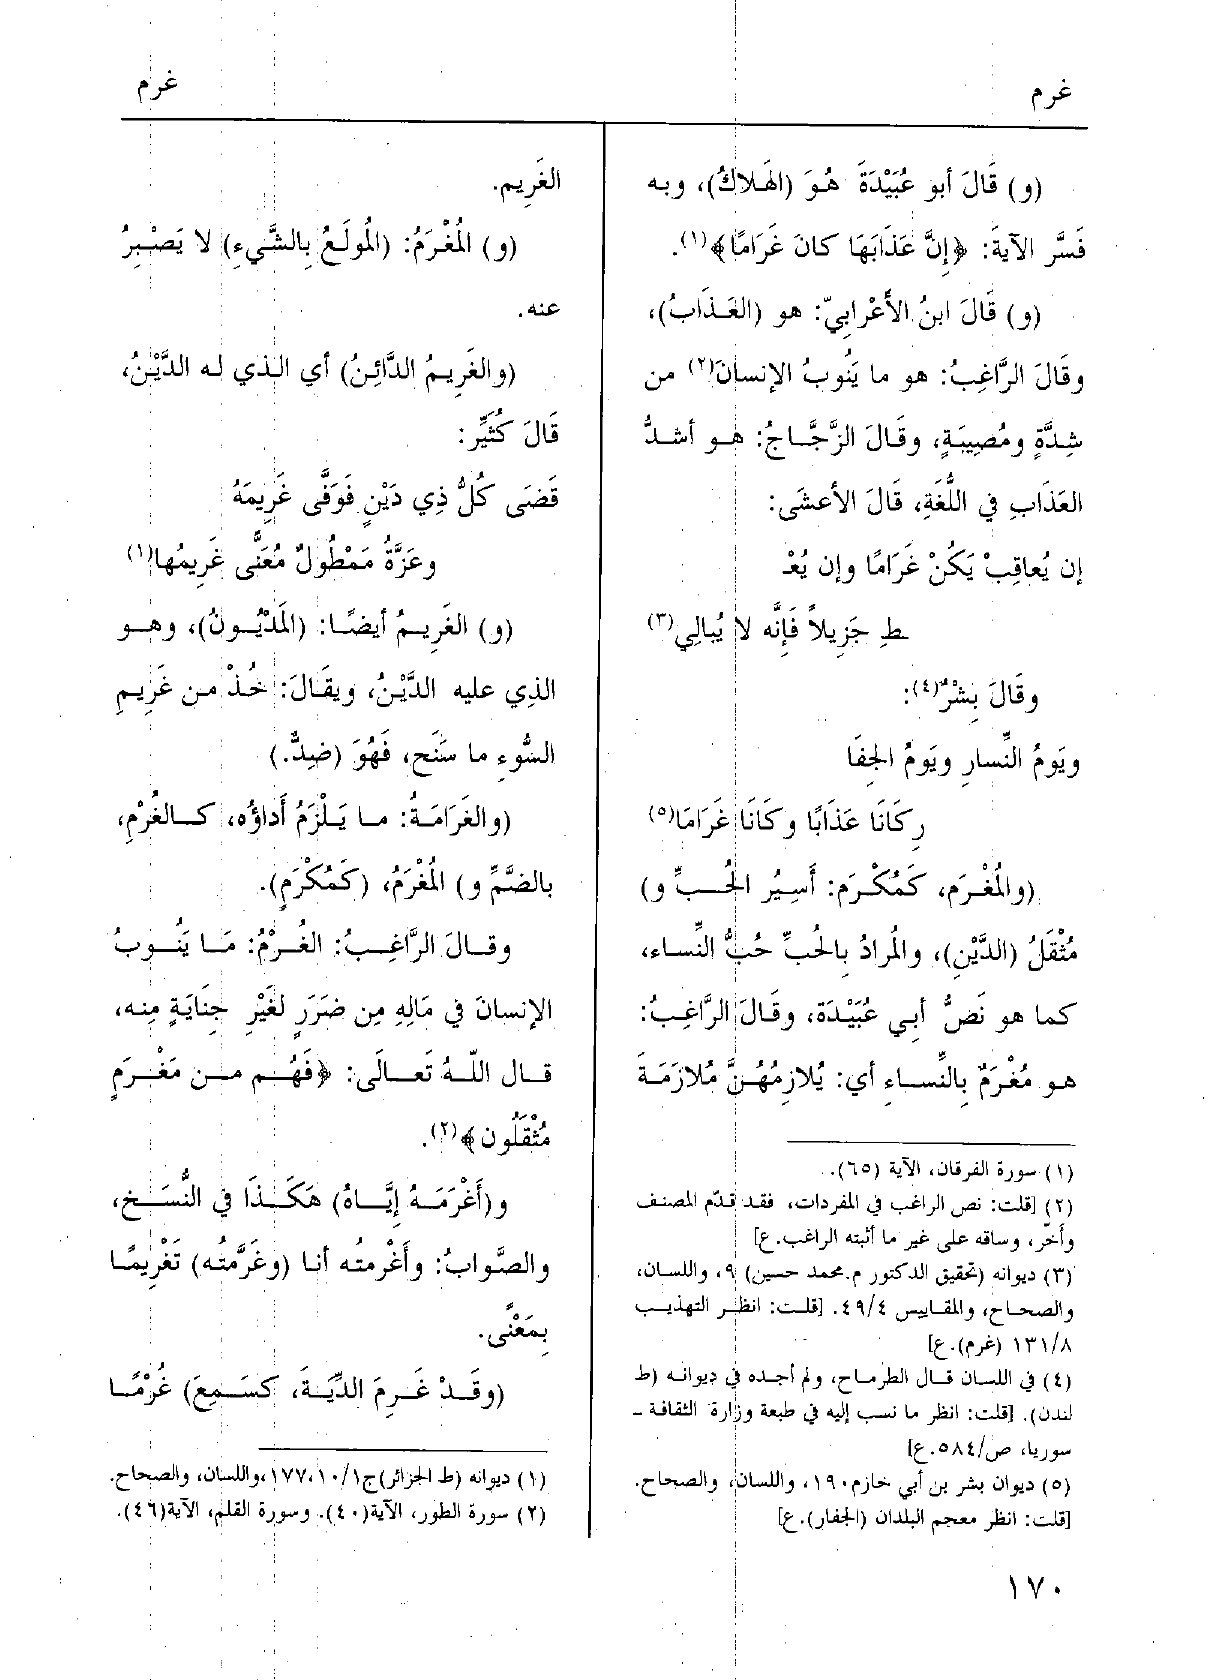 غرم
غرم
(و) قَالَ أبو عُبَيْدَةَ هُوَ (الهَلاكُ)، وبه
فَسَّر الآيةَ: ﴿إِنَّ عَذَابَهَا كانَ غَرَامًا﴾(١).
(و) قَالَ ابنُ الأَعْرابيّ: هو (العَذَابُ)،
وقَالَ الرَّاغِبُ: هو ما يَنُوبُ الإنسانَ(٢) من
شِدَّةٍ ومُصِيبَةٍ، وقَالَ الزَّجَّاجُ: هو أشدُّ
العَذَابِ في اللُّغَةِ، قَالَ الأعشَى:
إن يُعاقِبْ يَكُنْ غَرَامًا وإن يُعْـ
ـطِ جَزِيلاً فَإِنَّه لا يُبالِي(٣)
وقَالَ بِشْرٌ(٤):
ويَومُ النِّسارِ ويَومُ الجِفَا
رِ كَانَا عَذَابًا وكَانَا غَرَامَا(٥)
(والمُغْرَم، كَمُكْرَم: أَسِيرُ الحُبِّ و)
مُثْقَلُ (الدَّيْنِ)، والمُرادُ بِالحُبِّ حُبُّ النِّساء،
كما هو نَصُّ أبي عُبَيْدَة، وقَالَ الرَّاغِبُ:
هو مُغْرَمٌ بِالنِّساءِ أي: يُلازِمُهُنَّ مُلازَمَةَ
(١) سورة الفرقان، الآية (٦٥).
(٢) [قلت: نص الراغب في المفردات، فقد قدّم المصنف
وأخّر، وساقه على غير ما أثبته الراغب.ع]
(٣) ديوانه (تحقيق الدكتور م.محمد حسين) ٩، واللسان،
والصحاح، والمقاييس ٤٩/٤. [قلت: انظر التهذيب
١٣١/٨ (غرم).ع]
(٤) في اللسان قال الطرماح، ولم أجده في ديوانه (ط
لندن). [قلت: انظر ما نسب إليه في طبعة وزارة الثقافة ـ
سوريا، ص/٥٨٤.ع]
(٥) ديوان بشر بن أبي خازم١٩٠، واللسان، والصحاح.
[قلت: انظر معجم البلدان (الجفار).ع]
الغَرِيم.
(و) المُغْرَمُ: (المُولَعُ بِالشَّيءِ) لا يَصْبِرُ
عنه.
(والغَرِيمُ الدَّائِنُ) أي الذي له الدَّيْنُ،
قَالَ كُثَيِّر:
قَضَى كُلُّ ذِي دَيْنٍ فَوَفَّى غَرِيمَهُ
وعَزَّةُ مَمْطُولٌ مُعَنًّى غَرِيمُها(١)
(و) الغَرِيمُ أيضًا: (المَدْيُونُ)، وهو
الذِي عليه الدَّيْنُ، ويقَالَ: خُذْ من غَرِيمِ
السُّوءِ ما سَنَح، فَهُوَ (ضِدٌّ.)
(والغَرَامَةُ: ما يَلْزَمُ أَداؤُه، كالغُرْمِ،
بالضَّمِّ و) المُغْرَمُ، (كَمُكْرَمٍ).
وقالَ الرَّاغِبُ: الغُرْمُ: مَا يَنُوبُ
الإنسانَ في مَالِهِ مِن ضَرَرٍ لغَيْرِ جِنَايَةٍ مِنه،
قال اللّهُ تَعالَى: ﴿فَهُم من مَغْرَمٍ
مُثْقَلُون﴾(٢).
و(أَغْرَمَهُ إيَّاهُ) هَكَذَا في النُّسَخِ،
والصَّوابُ: وأَغْرمتُه أنا (وغَرَّمتُه) تَغْرِيمًا
بِمَعْنًى.
(وقَدْ غَرِمَ الدِّيَةَ، كسَمِعَ) غُرْمًا
(١) ديوانه (ط الجزائر)ج١٧٧،١٠/١،واللسان، والصحاح.
(٢) سورة الطور، الآية(٤٠). وسورة القلم، الآية(٤٦).
١٧٠